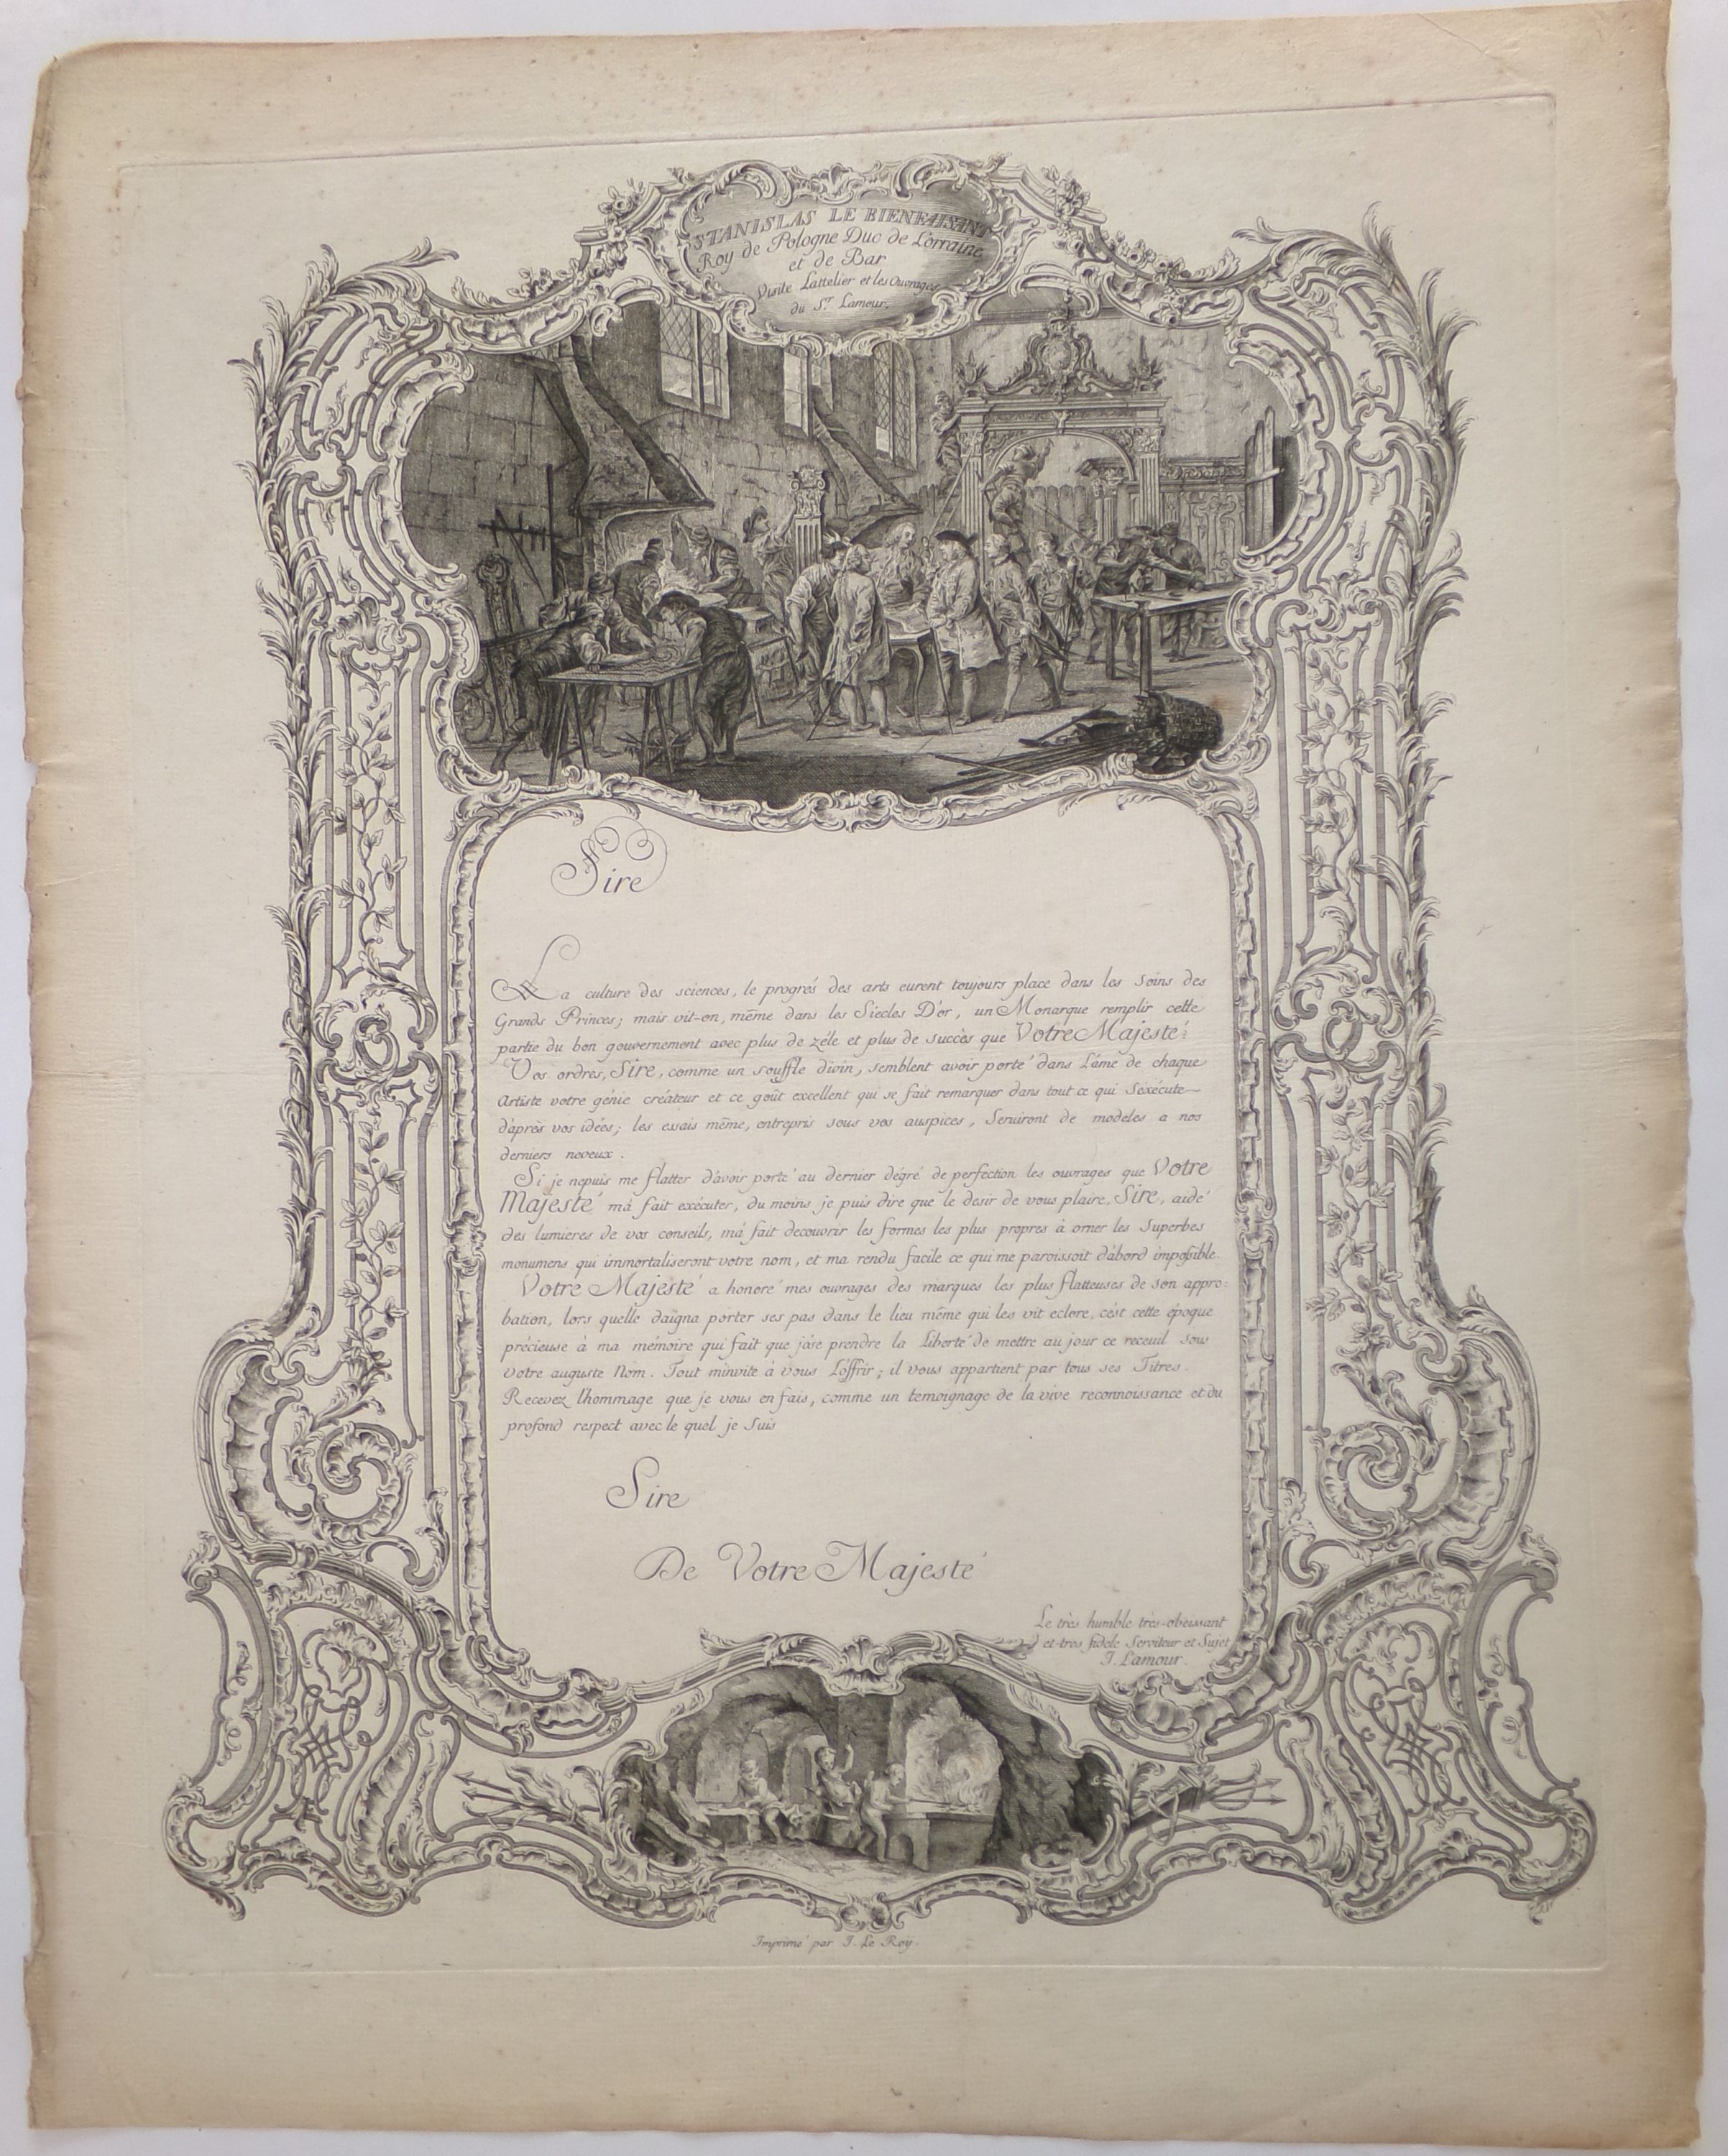 STANISLAS LE BIENFAISANT
Roy de Pologne Duc de Lorraine
et de Bar
Visite Lattelier et les Ouvrages
du S.r Lamour.
Sire
La culture des sciences, le progrés des arts eurent toujours place dans les soins des
Grands Princes; mais vit-on, même dans les Siecles D'or, un Monarque remplir cette
partie du bon gouvernement avec plus de zéle et plus de succès que Votre Majesté?
Vos ordres, Sire, comme un souffle divin, semblent avoir porté dans L'âme de chaque
Artiste votre génie créateur et ce goût excellent qui se fait remarquer dans tout ce qui S'exécute
d'après vos idées; les essais même, entrepris sous vos auspices, Serviront de modeles a nos
derniers neveux.
Si je nepuis me flatter d'avoir porté au dernier dégré de perfection les ouvrages que Votre
Majesté m'a fait exécuter, du moins je puis dire que le desir de vous plaire, Sire, aidé
des lumieres de vos conseils, m'a fait decouvrir les formes les plus propres à orner les Superbes
monumens qui immortaliseront votre nom, et ma rendu facile ce qui me paroissoit d'abord impossible.
Votre Majesté a honoré mes ouvrages des marques les plus flatteuses de son appro:
bation, lors quelle daigna porter ses pas dans le lieu même qui les vit eclore, c'est cette époque
précieuse à ma mémoire qui fait que j'ose prendre la Liberté de mettre au jour ce receuil sous
votre auguste Nom. Tout m'invite à vous L'offrir; il vous appartient par tous ses Titres.
Recevez l'hommage que je vous en fais, comme un temoignage de la vive reconnoissance et du
profond respect avec le quel je Suis
Sire
De Votre Majesté
Le très humble très-obeissant
et-tres fidele Serviteur et Sujet
J. Lamour.
Imprimé par J. Le Roy.